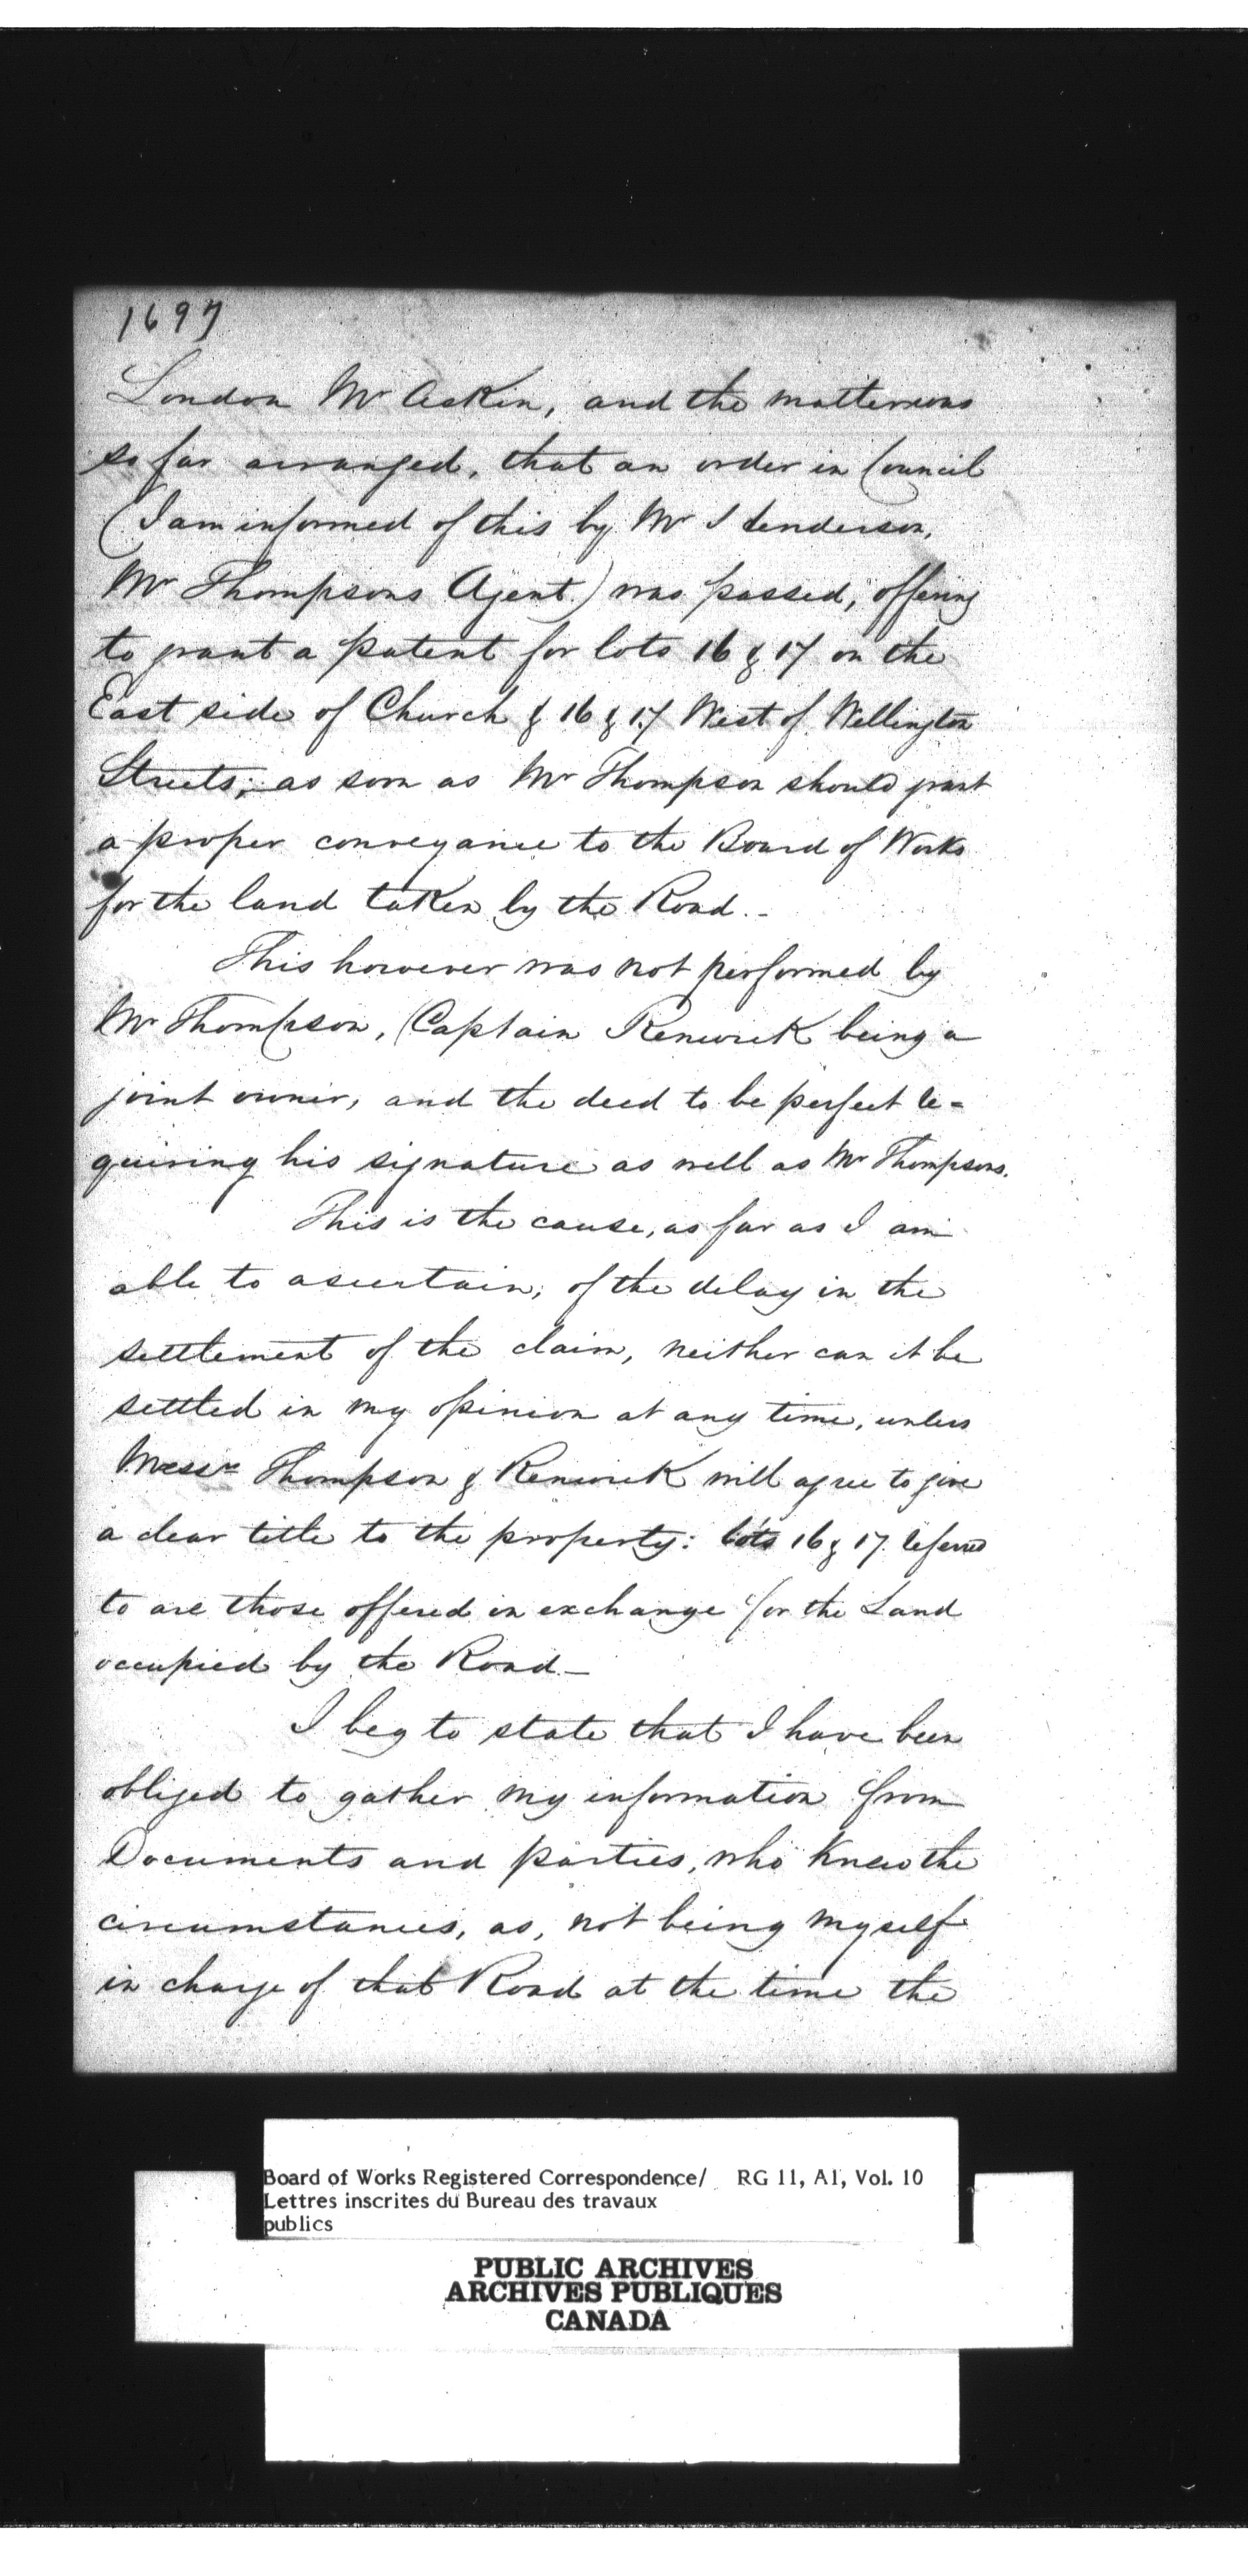 1697
London Mr Askin, and the matter was
so far arranged, that an order in Council
(I am informed of this by Mr Henderson,
Mr Thompsons Agent) was passed, offering
to grant a patent for lots 16 & 17 on the
East side of Church & 16 & 17 West of Wellington
Streets; as soon as Mr Thompson should grant
a proper conveyance to the Board of Works
for the land taken by the Road.-
This however was not performed by
Mr Thompson, (Captain Renwick being a
joint owner, and the deed to be perfect re-
quiring his signature as well as Mr Thompsons.
This is the cause, as far as I am
able to ascertain, of the delay in the
settlement of the claim, neither can it be
settled in my opinion at any time, unless
Messrs Thompson & Renwick will agree to give
a clear title to the property: lots 16 & 17 referred
to are those offered in exchange for the Land
occupied by the Road-
I beg to state that I have been
obliged to gather my information from
Documents and parties, who knew the
circumstances, as, not being myself
in charge of that Road at the time the
Board of Works Registered Correspondence/ RG 11, A1, Vol. 10
Lettres inscrites du Bureau des travaux
publics
PUBLIC ARCHIVES
ARCHIVES PUBLIQUES
CANADA